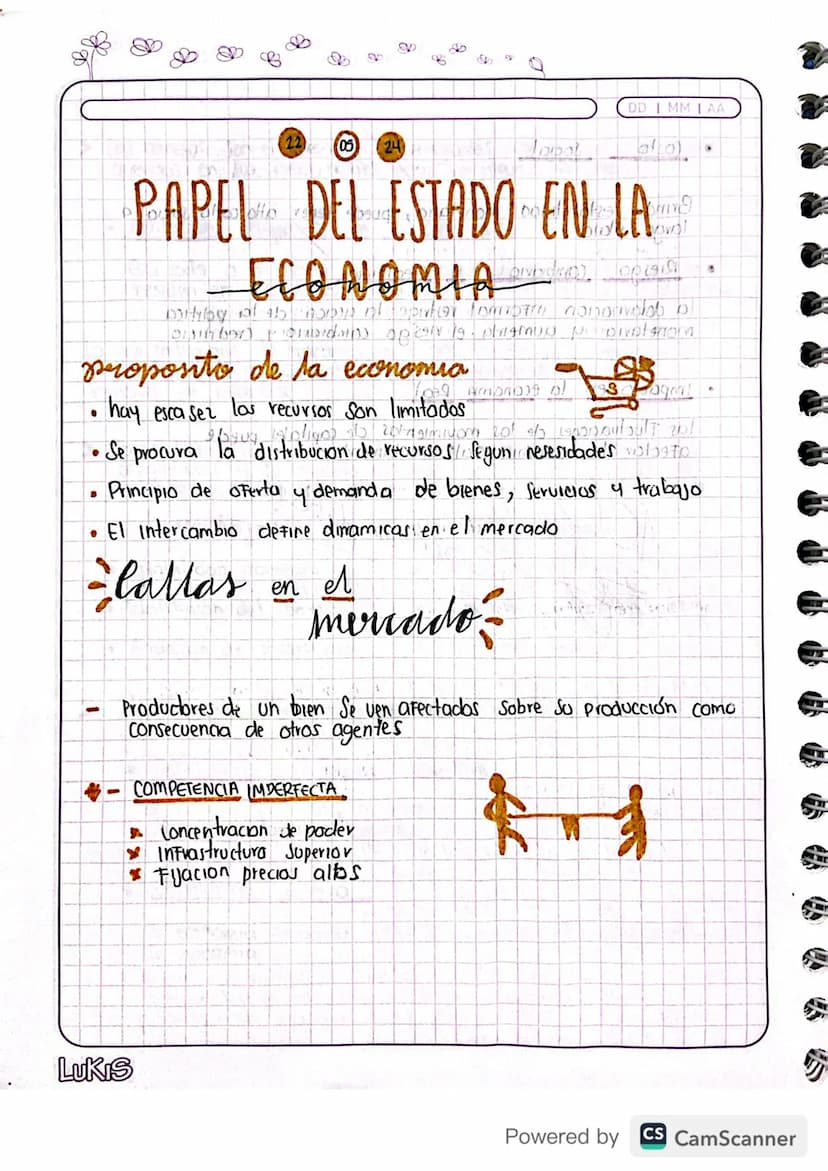 DD | MM | AA
22 09 24
PAPEL DEL ESTADO EN LA
ECONOMIA
proposito de la economia
• hay escasez los recursos son limitados
• Se procura la distribucion de recursos segun nesesidades
• Principio de oferta y demanda de bienes, servicios y trabajo
• El intercambio define dinamicas en el mercado
fallas en el
mercado
- Productores de un bien se ven afectados sobre su producción como
consecuencia de otros agentes
- COMPETENCIA IMPERFECTA
Concentracion de poder
Infrastructura Superior
Fijacion precios altos
LUKIS
Powered by CS CamScanner